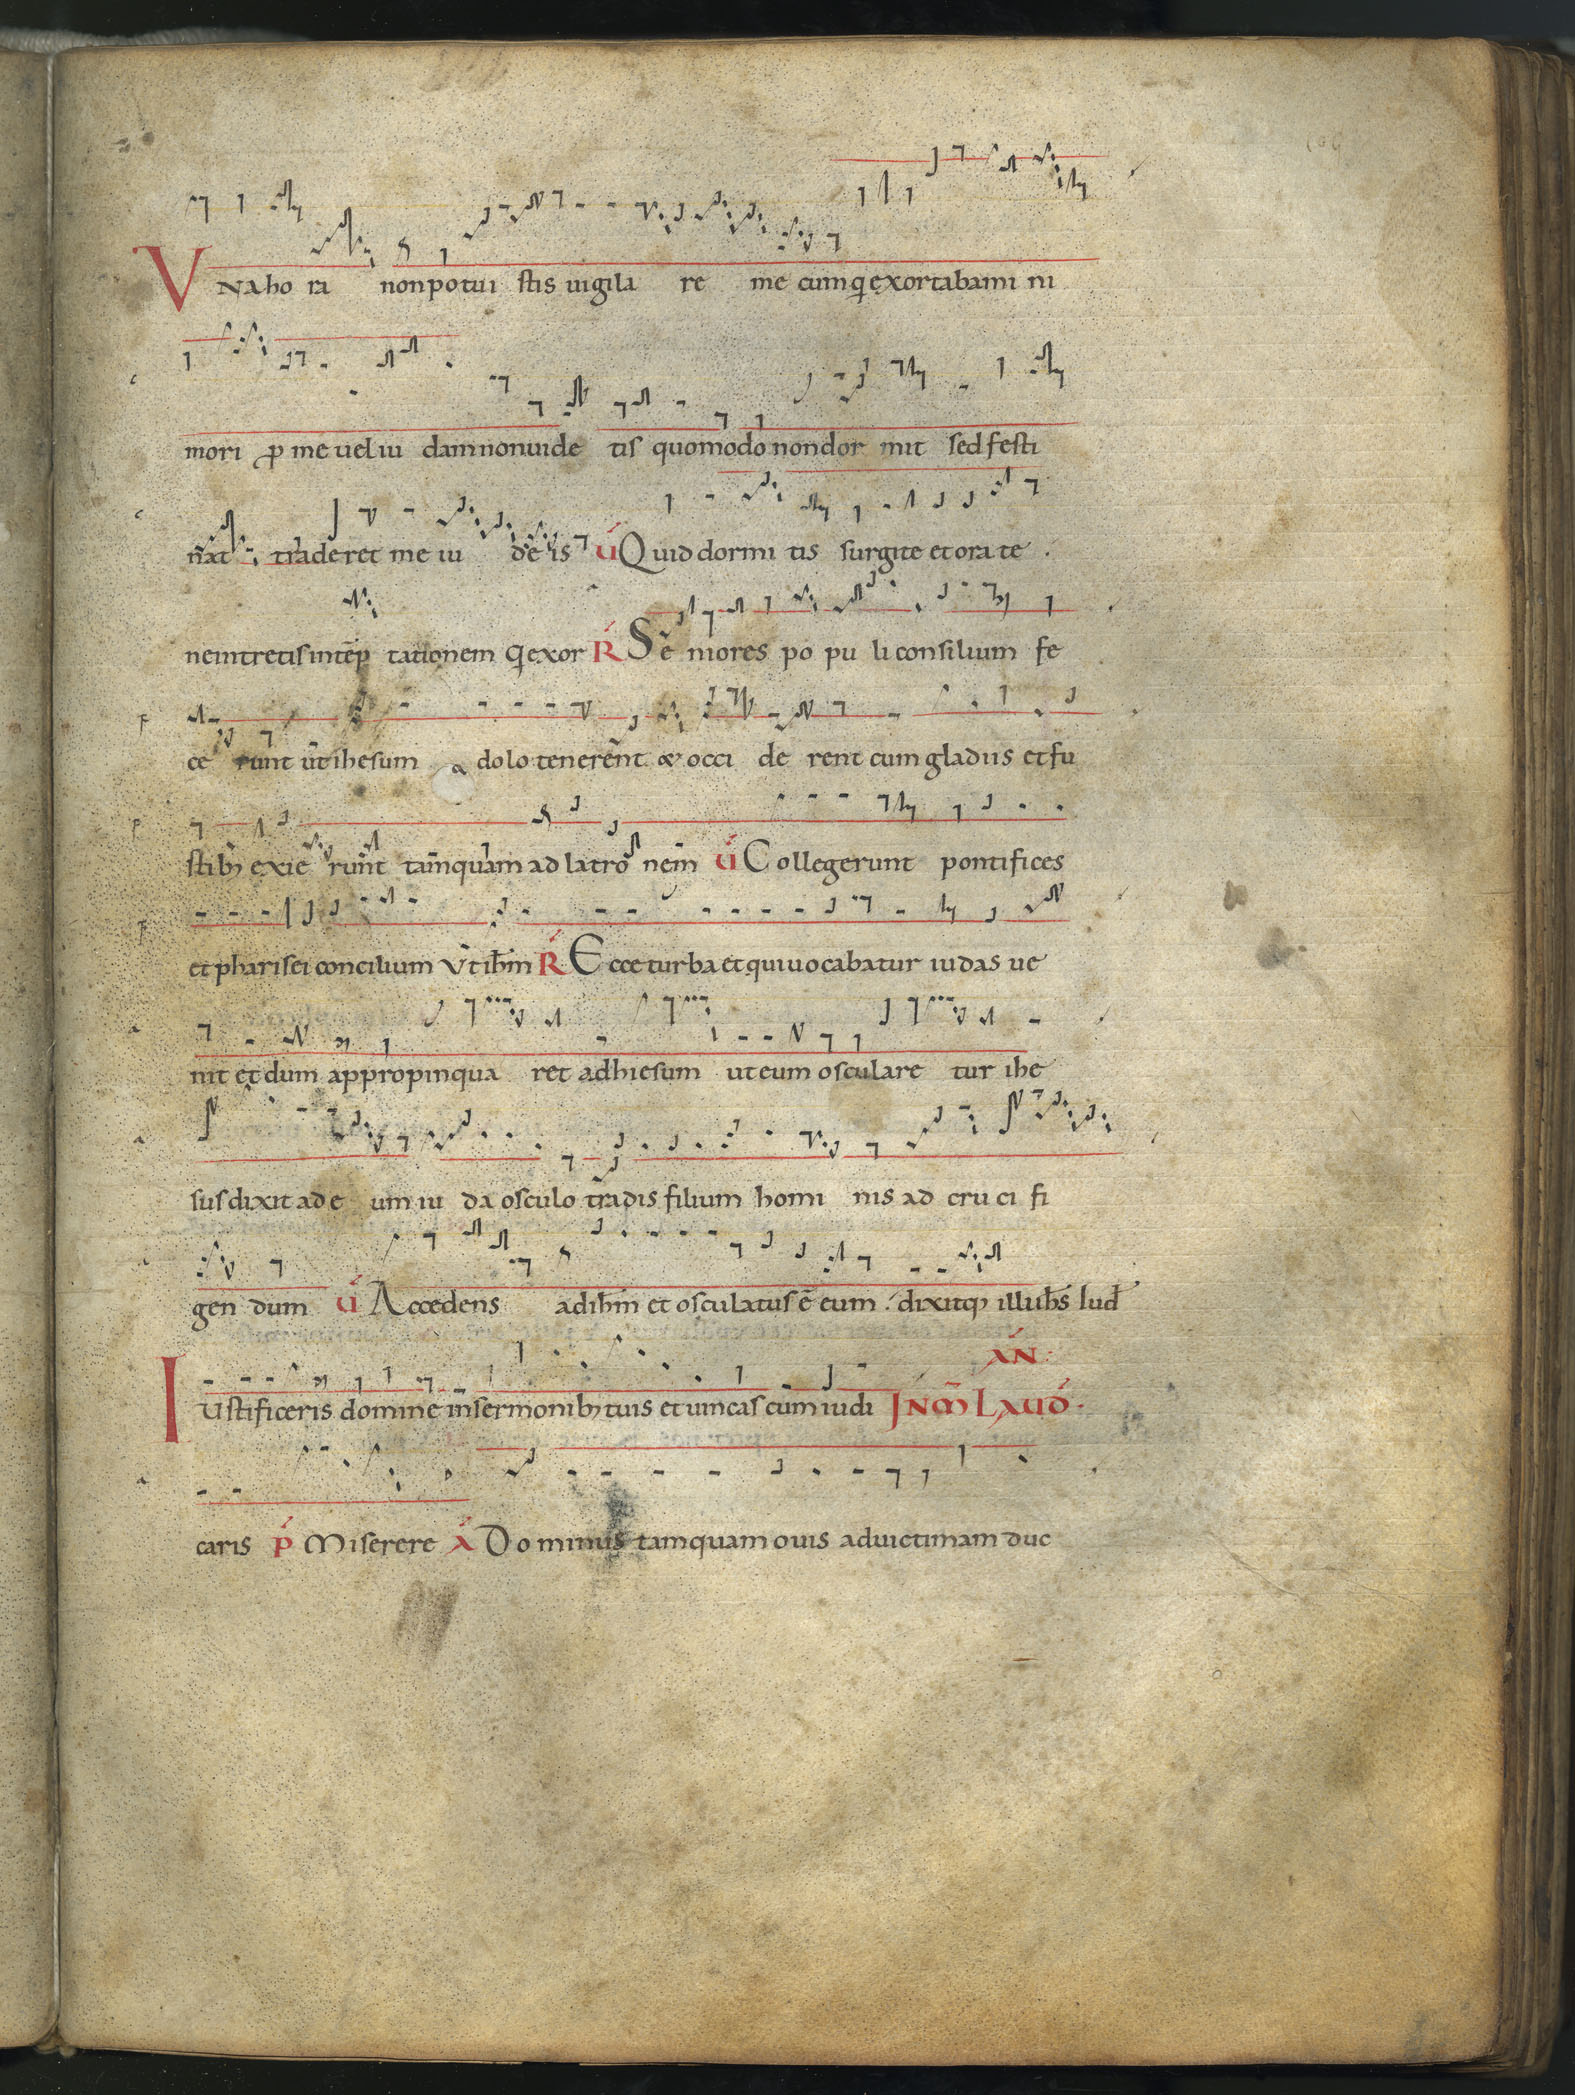 Vna ho ra non potui stis uigila re me cum q̄ exortabami ni
mori ꝓ me uel iu dam non uide tis quomodo non dor mit sed festi
nat traderet me iu de is V́ Quid dormi tis surgite et ora te .
ne intretis in tēp tationem q̄ exor Ŕ Se niores po pu li consilium fe
ce runt ut ihesum a dolo tenerent & occi de rent cum gladiis et fu
stibȝ exie runt tamquam ad latro nem V́ Collegerunt pontifices
et pharisei concilium Vt ihm̄ Ŕ Ecce turba et qui uocabatur iudas ue
nit et dum appropinqua ret ad hiesum ut eum osculare tur ihe
sus dixit ad e um iu da osculo tradis filium homi nis ad cru ci fi
gen dum V́ Accedens ad ihm̄ et osculatus ē eum . dixitqȝ illi ihs̄ Iud̄
AN
Iustificeris domine in sermonibȝ tuis et uincas cum iudi IN M̄ LAUD .
caris ṕ Miserere Á Dominus tamquam ouis ad uictimam duc